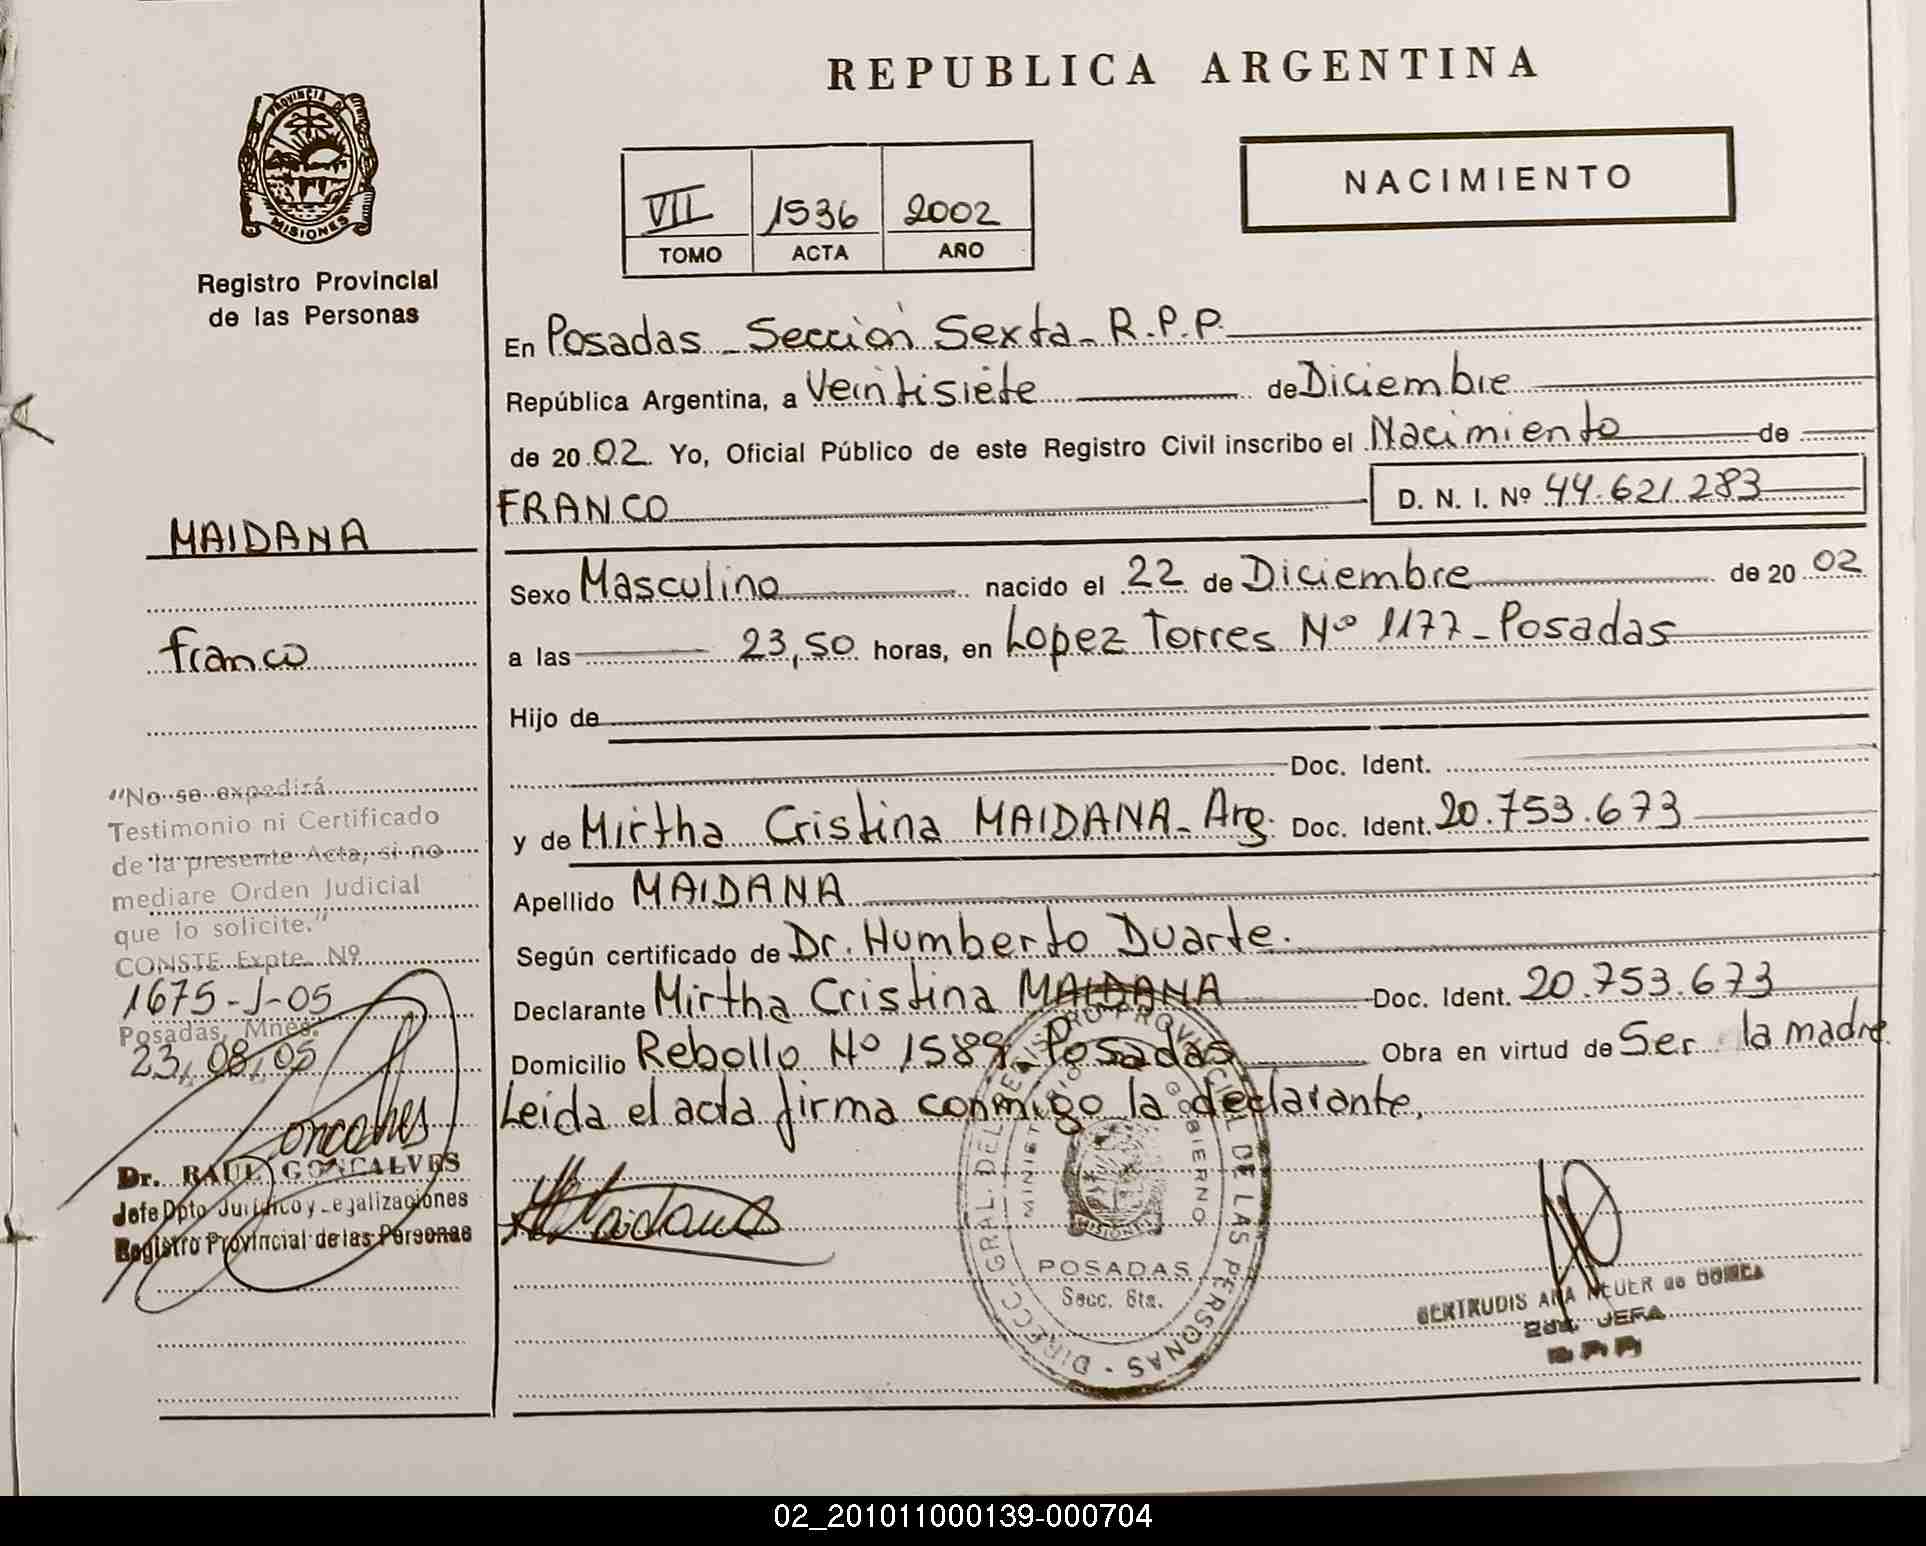 REPUBLICA ARGENTINA
PROVINCIA DE
MISIONES
Registro Provincial
de las Personas
NACIMIENTO
VII 1536 2002
TOMO ACTA AÑO
En Posadas - Sección Sexta - R.P.P.
República Argentina, a Veintisiete de Diciembre
de 2002. Yo, Oficial Público de este Registro Civil inscribo el Nacimiento de
FRANCO D. N. I. Nº 44.621.283
Sexo Masculino nacido el 22 de Diciembre de 2002
a las 23,50 horas, en Lopez Torres Nº 1177 - Posadas
Hijo de
Doc. Ident.
y de Mirtha Cristina MAIDANA - Arg. Doc. Ident. 20.753.673
Apellido MAIDANA
Según certificado de Dr. Humberto Duarte.
Declarante Mirtha Cristina MAIDANA Doc. Ident. 20.753.673
Domicilio Rebollo Nº 1589 Posadas Obra en virtud de Ser la madre
Leida el acta firma conmigo la declarante,
MAIDANA
Franco
"No se expedirá
Testimonio ni Certificado
de la presente Acta, si no
mediare Orden Judicial
que lo solicite."
CONSTE Expte. Nº
1675-J-05
Posadas, Mnes.
23, 08, 05
Goncalves
Dr. RAUL GONCALVES
Jefe Dpto Jurídico y Legalizaciones
Registro Provincial de las Personas
Maidana
DIRECC. GRAL. DEL REGISTRO PROVINCIAL DE LAS PERSONAS
MINISTERIO GOBIERNO
MISIONES
POSADAS
Secc. 6ta.
GERTRUDIS ANA
2da. JEFA
02_201011000139-000704